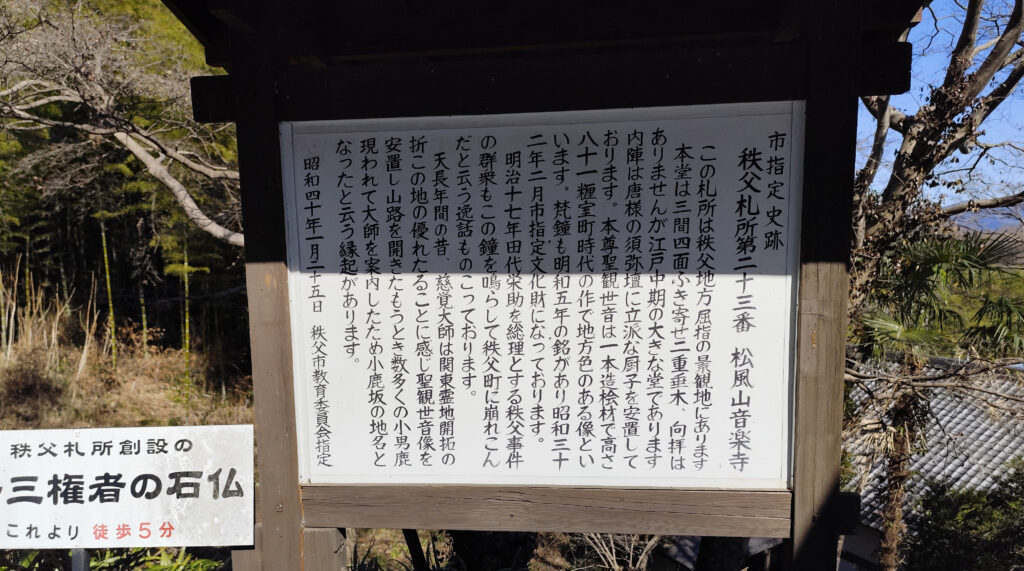 市指定史跡
秩父札所第二十三番 松風山音楽寺
この札所は秩父地方屈指の景観地にあります
本堂は三間四面ふき寄せ二重垂木、向拝は
ありませんが江戸中期の大きな堂であります
内陣は唐様の須弥壇に立派な厨子を安置して
おります。本尊聖観世音は一本造桧材で高さ
八十一糎室町時代の作で地方色のある像とい
います。梵鐘も明和五年の銘があり昭和三十
二年二月市指定文化財になっております。
明治十七年田代栄助を総理とする秩父事件
の群衆もこの鐘を鳴らして秩父町に崩れこん
だと云う逸話ものこっております。
天長年間の昔、慈覚大師は関東霊地開拓の
折この地の優れたることに感じ聖観世音像を
安置し山路を開きたもうとき数多くの小男鹿
現われて大師を案内したため小鹿坂の地名と
なったと云う縁起があります。
昭和四十年一月二十五日 秩父市教育委員会指定
秩父札所創設の
三権者の石仏
これより 徒歩5分